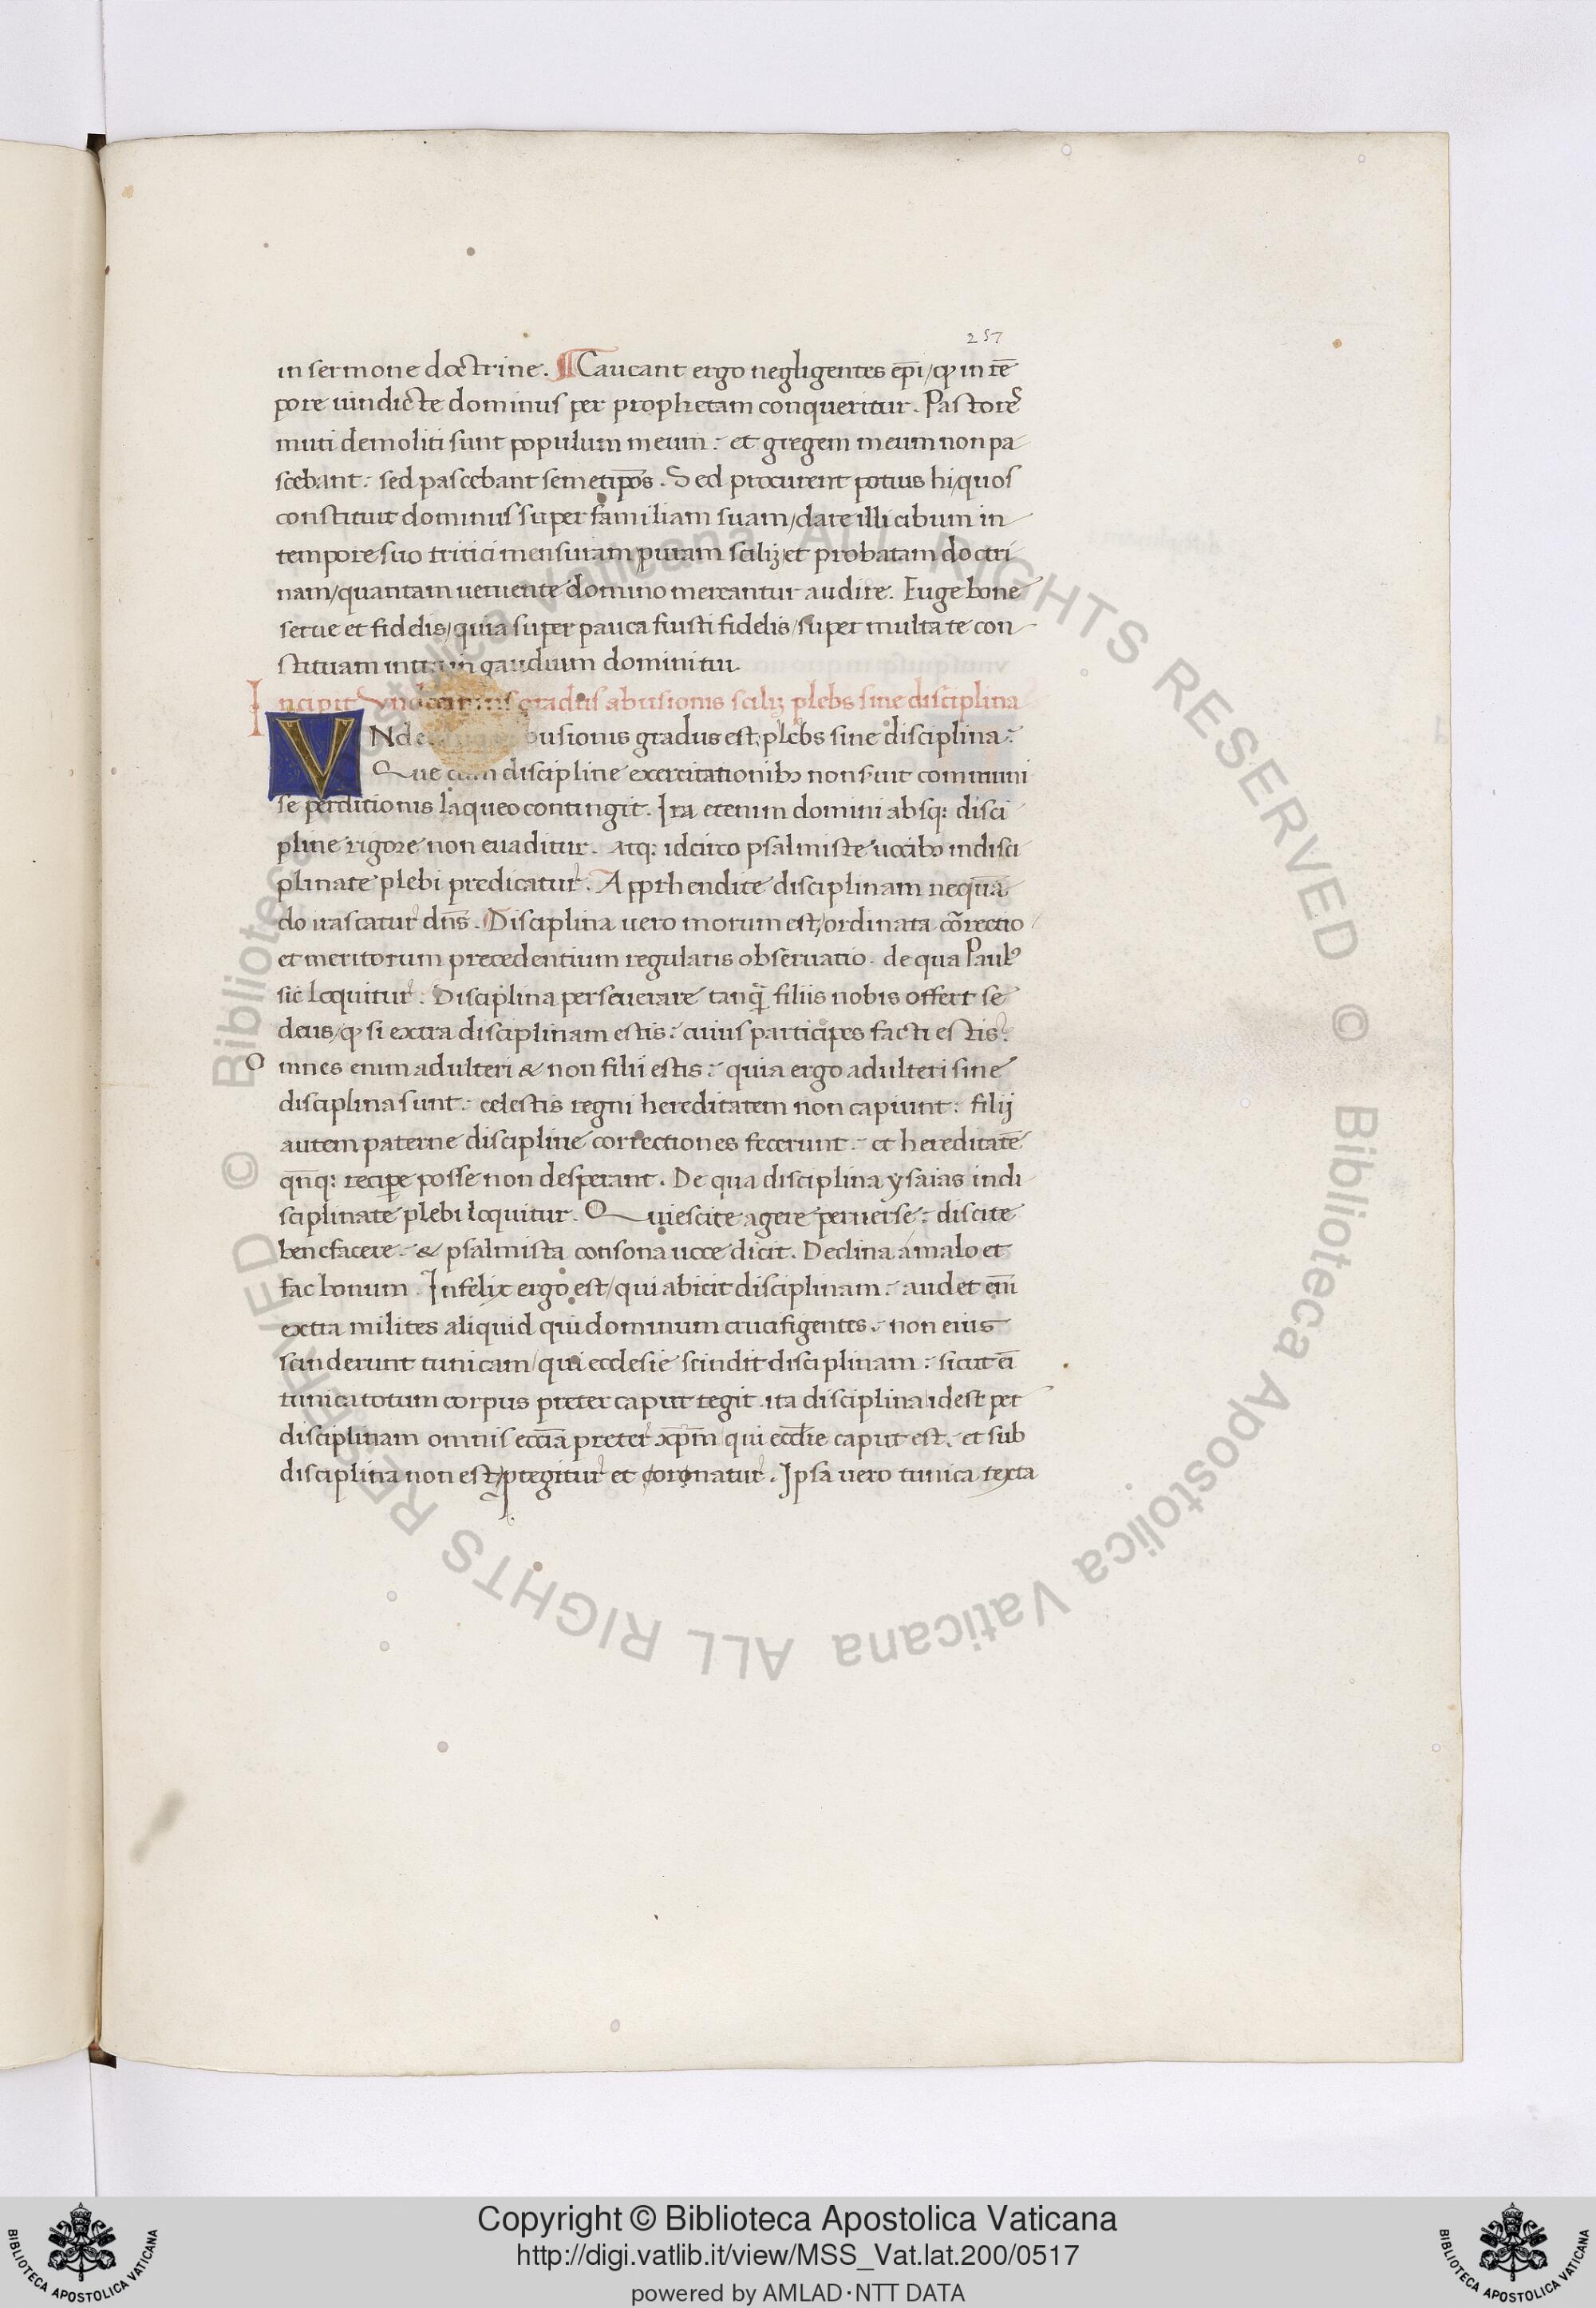 257
in sermone doctrine. Caueant ergo negligentes ep̄i/ qꝫ in tē
pore uindicte dominus per prophetam conqueritur. Pastores
muti demoliti sunt populum meum: et gregem meum non pa
scebant: sed pascebant semetip̄os. Sed procurent potius hi/quos
constituit dominus super familiam suam/dare illi cibum in
tempore suo tritici mensuram/puram scilꝫ et probatam doctri
nam/quatinam ueniente domino mereantur audire. Euge bone
serue et fidelis/quia super pauca fuisti fidelis/super multa te con
stituam intra in gaudium domini tui.
Incipit Vndecimus gradus abusionis scilꝫ plebs sine disciplina
VNde busionis gradus est/plebs sine disciplina:
Que cum discipline exercitationibꝫ non seruit communi
se perditionis laqueo contingit. Ira etenim domini absqꝫ disci
pline rigore non euaditur. atqꝫ idcirco psalmiste uocibꝫ indisci
plinate plebi predicatur. Apprhendite disciplinam nequā
do irascatur dn̄s. Disciplina uero morum est/ordinata cōrectio
et meritorum precedentium regularis obseruatio. de qua Paulꝰ
sic loquitur. Disciplina perseuerare tanq̄ filiis nobis offert se
deus/ qꝫ si extra disciplinam estis: cuius participes facti estis:
Omnes enim adulteri & non filii estis: quia ergo adulteri sine
disciplina sunt: celestis regni hereditatem non capiunt: filij
autem paterne discipline correctiones fecerunt: et hereditatē
qn̄qꝫ recipe posse non desperant. De qua disciplina ysaias indi
sciplinate plebi loquitur. Quiescite agere peruerse: discite
benefacere: & psalmista consona uoce dicit. Declina a malo et
fac bonum. Infelix ergo est/qui abicit disciplinam: audet em̄
extra milites aliquid qui dominum crucifigentes: non eius
scinderunt tunicam/qui ecclesie scindit disciplinam: sicut ei
tunica totum corpus preter caput tegit. ita disciplina idest per
disciplinam omnis ecc̄ia preter xp̄m qui eccl̄ie caput est: et sub
disciplina non est/ptegitur et coronatur. Ipsa uero tunica texta
© Biblioteca Apostolica Vaticana ALL RIGHTS RESERVED © Biblioteca Apostolica Vaticana ALL RIGHTS RESERVED
Copyright © Biblioteca Apostolica Vaticana
http://digi.vatlib.it/view/MSS_Vat.lat.200/0517
powered by AMLAD·NTT DATA
BIBLIOTECA APOSTOLICA VATICANA
BIBLIOTECA APOSTOLICA VATICANA